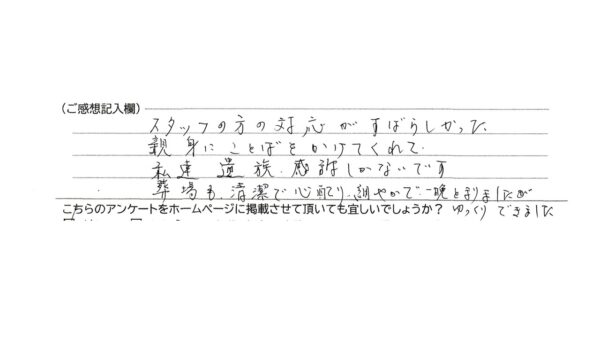 （ご感想記入欄）
スタッフの方の対応がすばらしかった
親身にことばをかけてくれて、
私達遺族、感謝しかないです
葬場も、清潔で心配り、細やかで一晩とまりましたが
こちらのアンケートをホームページに掲載させて頂いても宜しいでしょうか？ ゆっくりできました